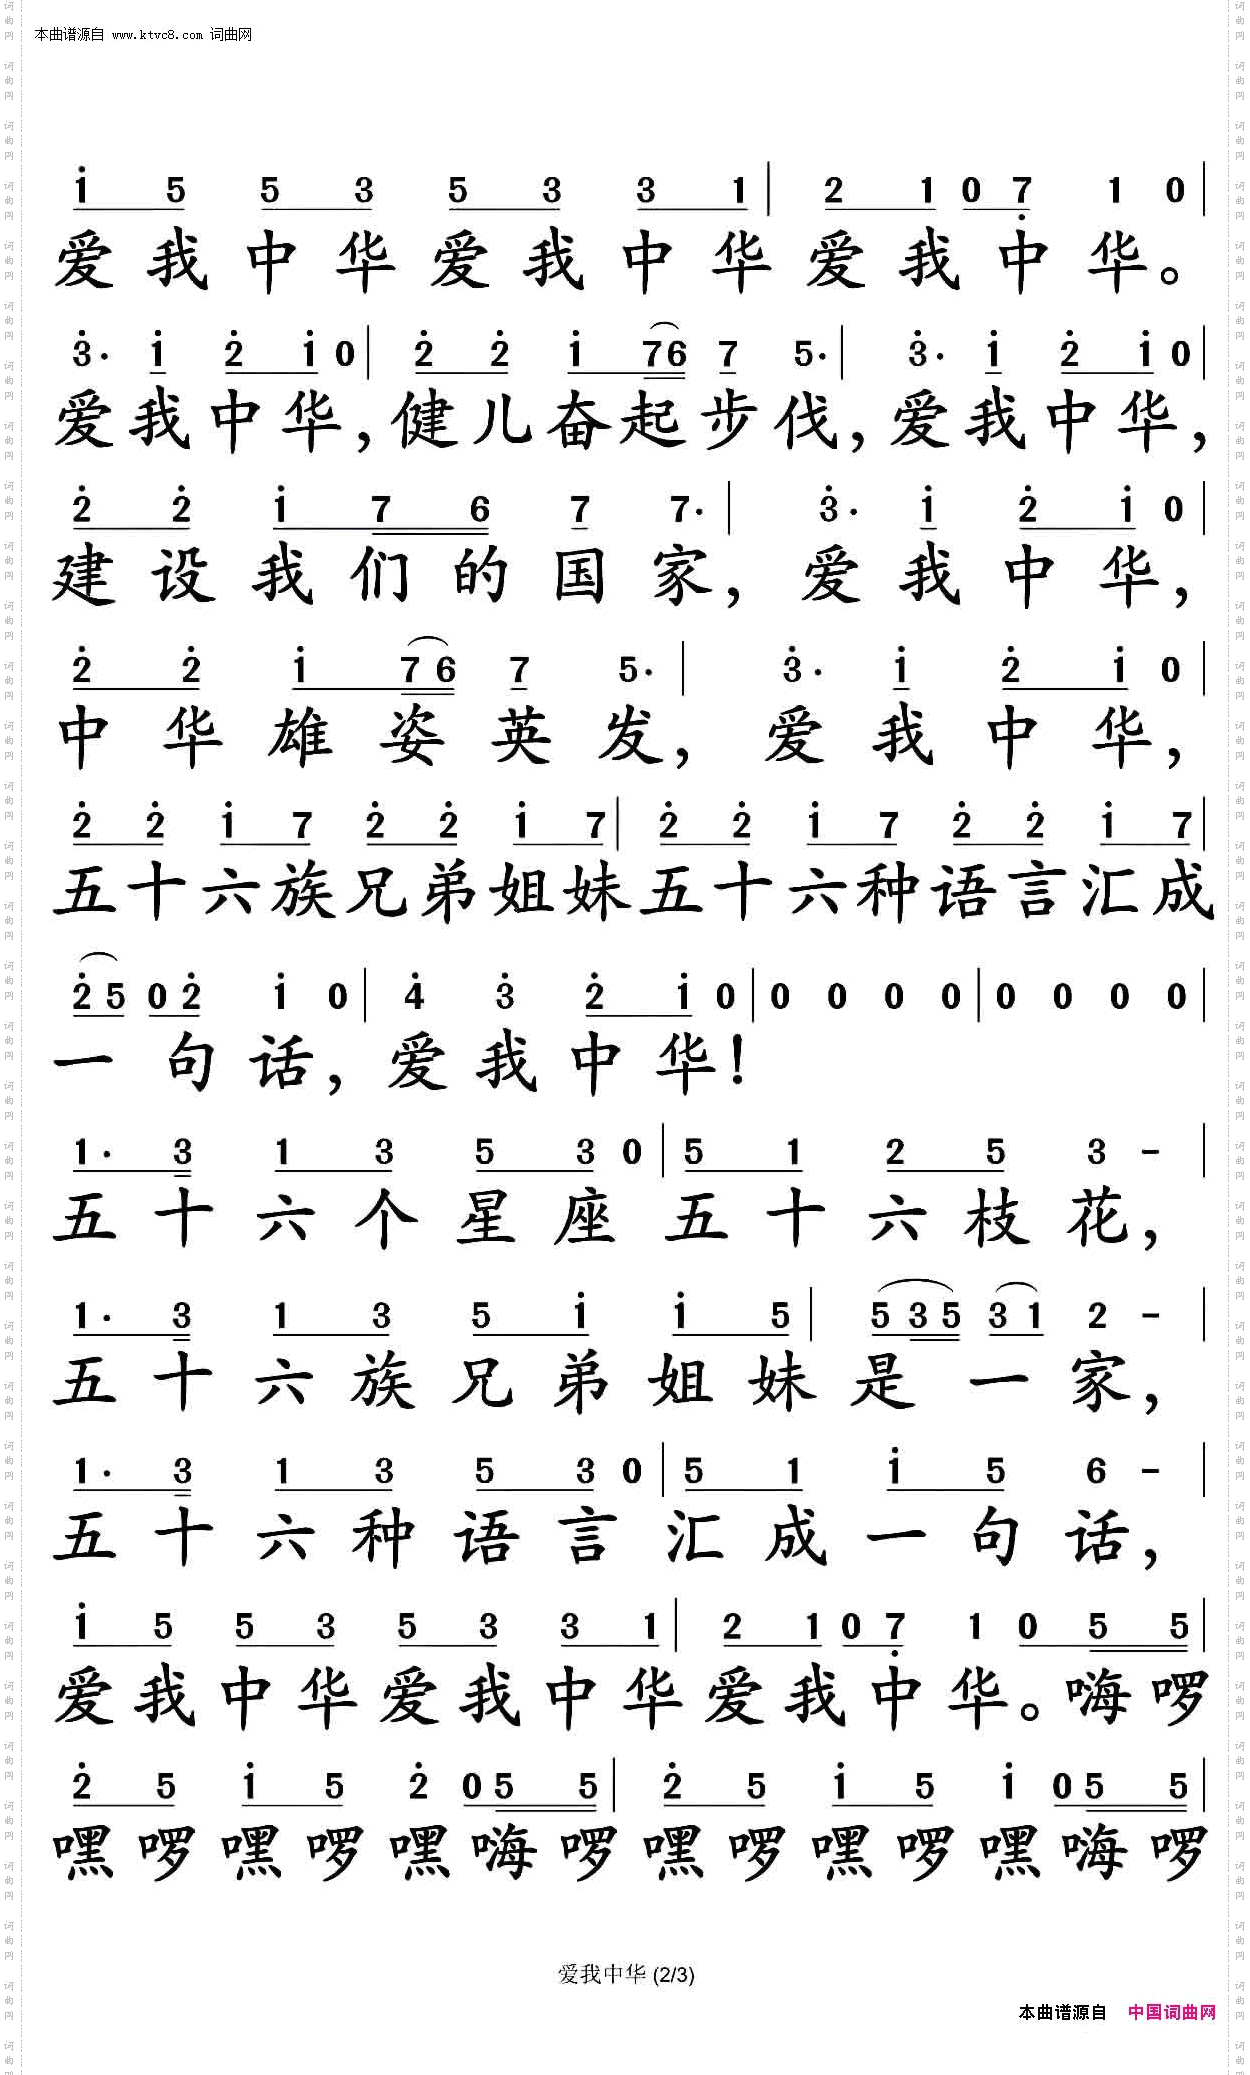 本曲谱源自 www.ktvc8.com 词曲网
i 5 5 3 5 3 3 1 | 2 1 0 7 1 0 |
爱我中华爱我中华爱我中华。
3· i 2 i 0 | 2 2 i 7 6 7 5· | 3· i 2 i 0 |
爱我中华,健儿奋起步伐,爱我中华,
2 2 i 7 6 7 7· | 3· i 2 i 0 |
建设我们的国家,爱我中华,
2 2 i 7 6 7 5· | 3· i 2 i 0 |
中华雄姿英发,爱我中华,
2 2 i 7 2 2 i 7 | 2 2 i 7 2 2 i 7 |
五十六族兄弟姐妹五十六种语言汇成
2 5 0 2 i 0 | 4 3 2 i 0 | 0 0 0 0 | 0 0 0 0 |
一句话,爱我中华!
1· 3 1 3 5 3 0 | 5 1 2 5 3 – |
五十六个星座五十六枝花,
1· 3 1 3 5 i i 5 | 5 3 5 3 1 2 – |
五十六族兄弟姐妹是一家,
1· 3 1 3 5 3 0 | 5 1 i 5 6 – |
五十六种语言汇成一句话,
i 5 5 3 5 3 3 1 | 2 1 0 7 1 0 5 5 |
爱我中华爱我中华爱我中华。嗨啰
2 5 i 5 2 0 5 5 | 2 5 i 5 i 0 5 5 |
嘿啰嘿啰嘿嗨啰嘿啰嘿啰嘿嗨啰
爱我中华 (2/3)
本曲谱源自 中国词曲网